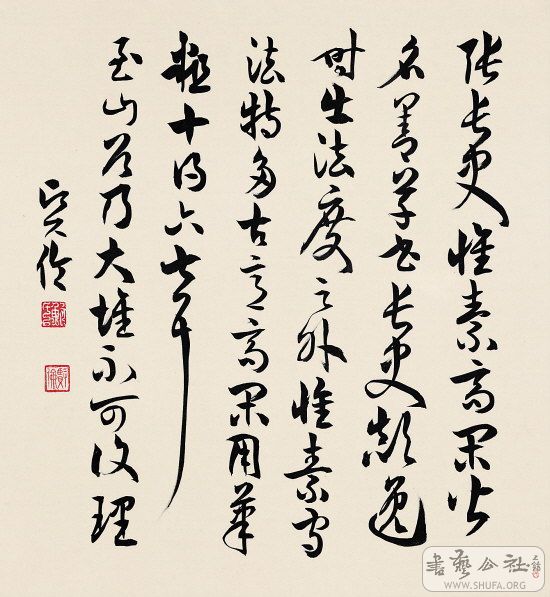 張長史懷素高閑皆
名善草書長史顛逸
時出法度之外懷素守
法特多古意高閑用筆
粗十得六七耳
至山谷乃大壞不可復理
書藝公社
WWW.SHUFA.ORG